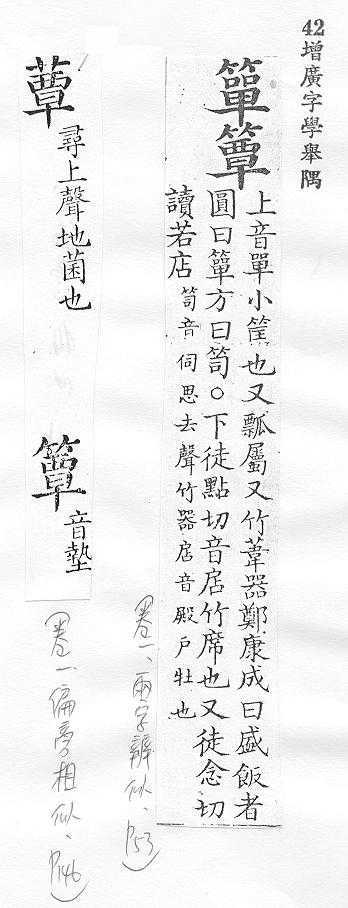 42增廣字學舉隅
簞簟
上音單小筐也又瓢屬又竹葦器鄭康成曰盛飯者
圓曰簞方曰笥○下徒點切音扂竹席也又徒念切
讀若店 笥音伺思去聲竹器扂音殿戶牡也
(卷一、兩字辨似、P53)
蕈 尋上聲地菌也
簟 音墊
(卷一、偏旁相似、P146)